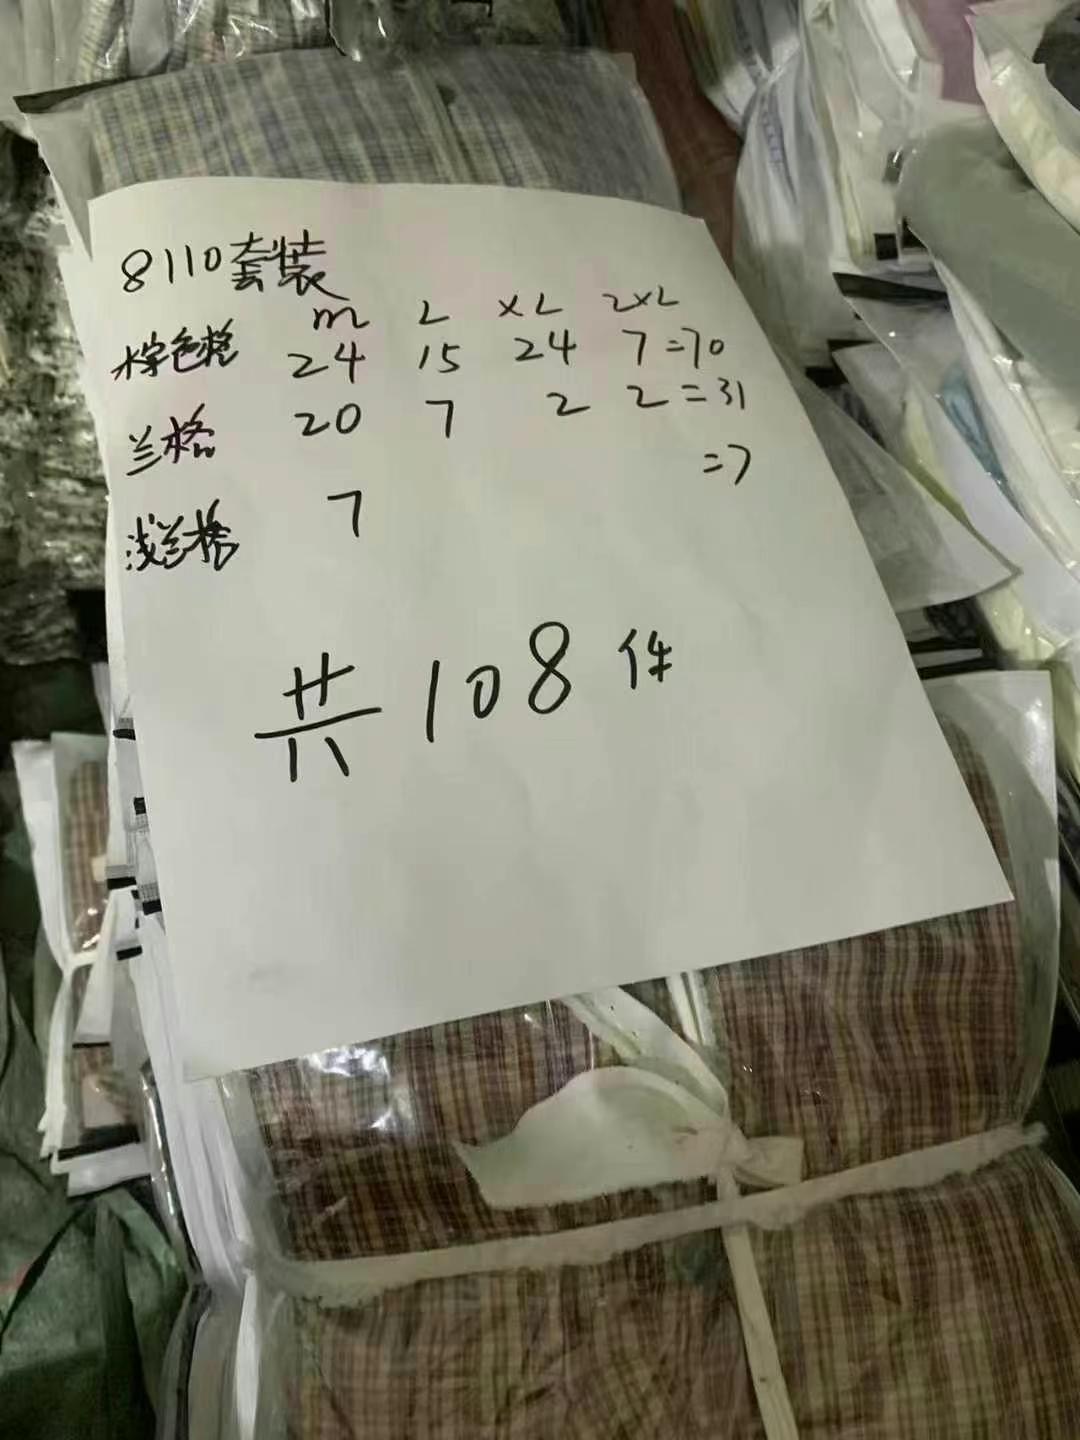 8110套装
m L XL 2XL
棕色格 24 15 24 7=70
兰格 20 7 2 2=31
浅兰格 7 =7
共108件